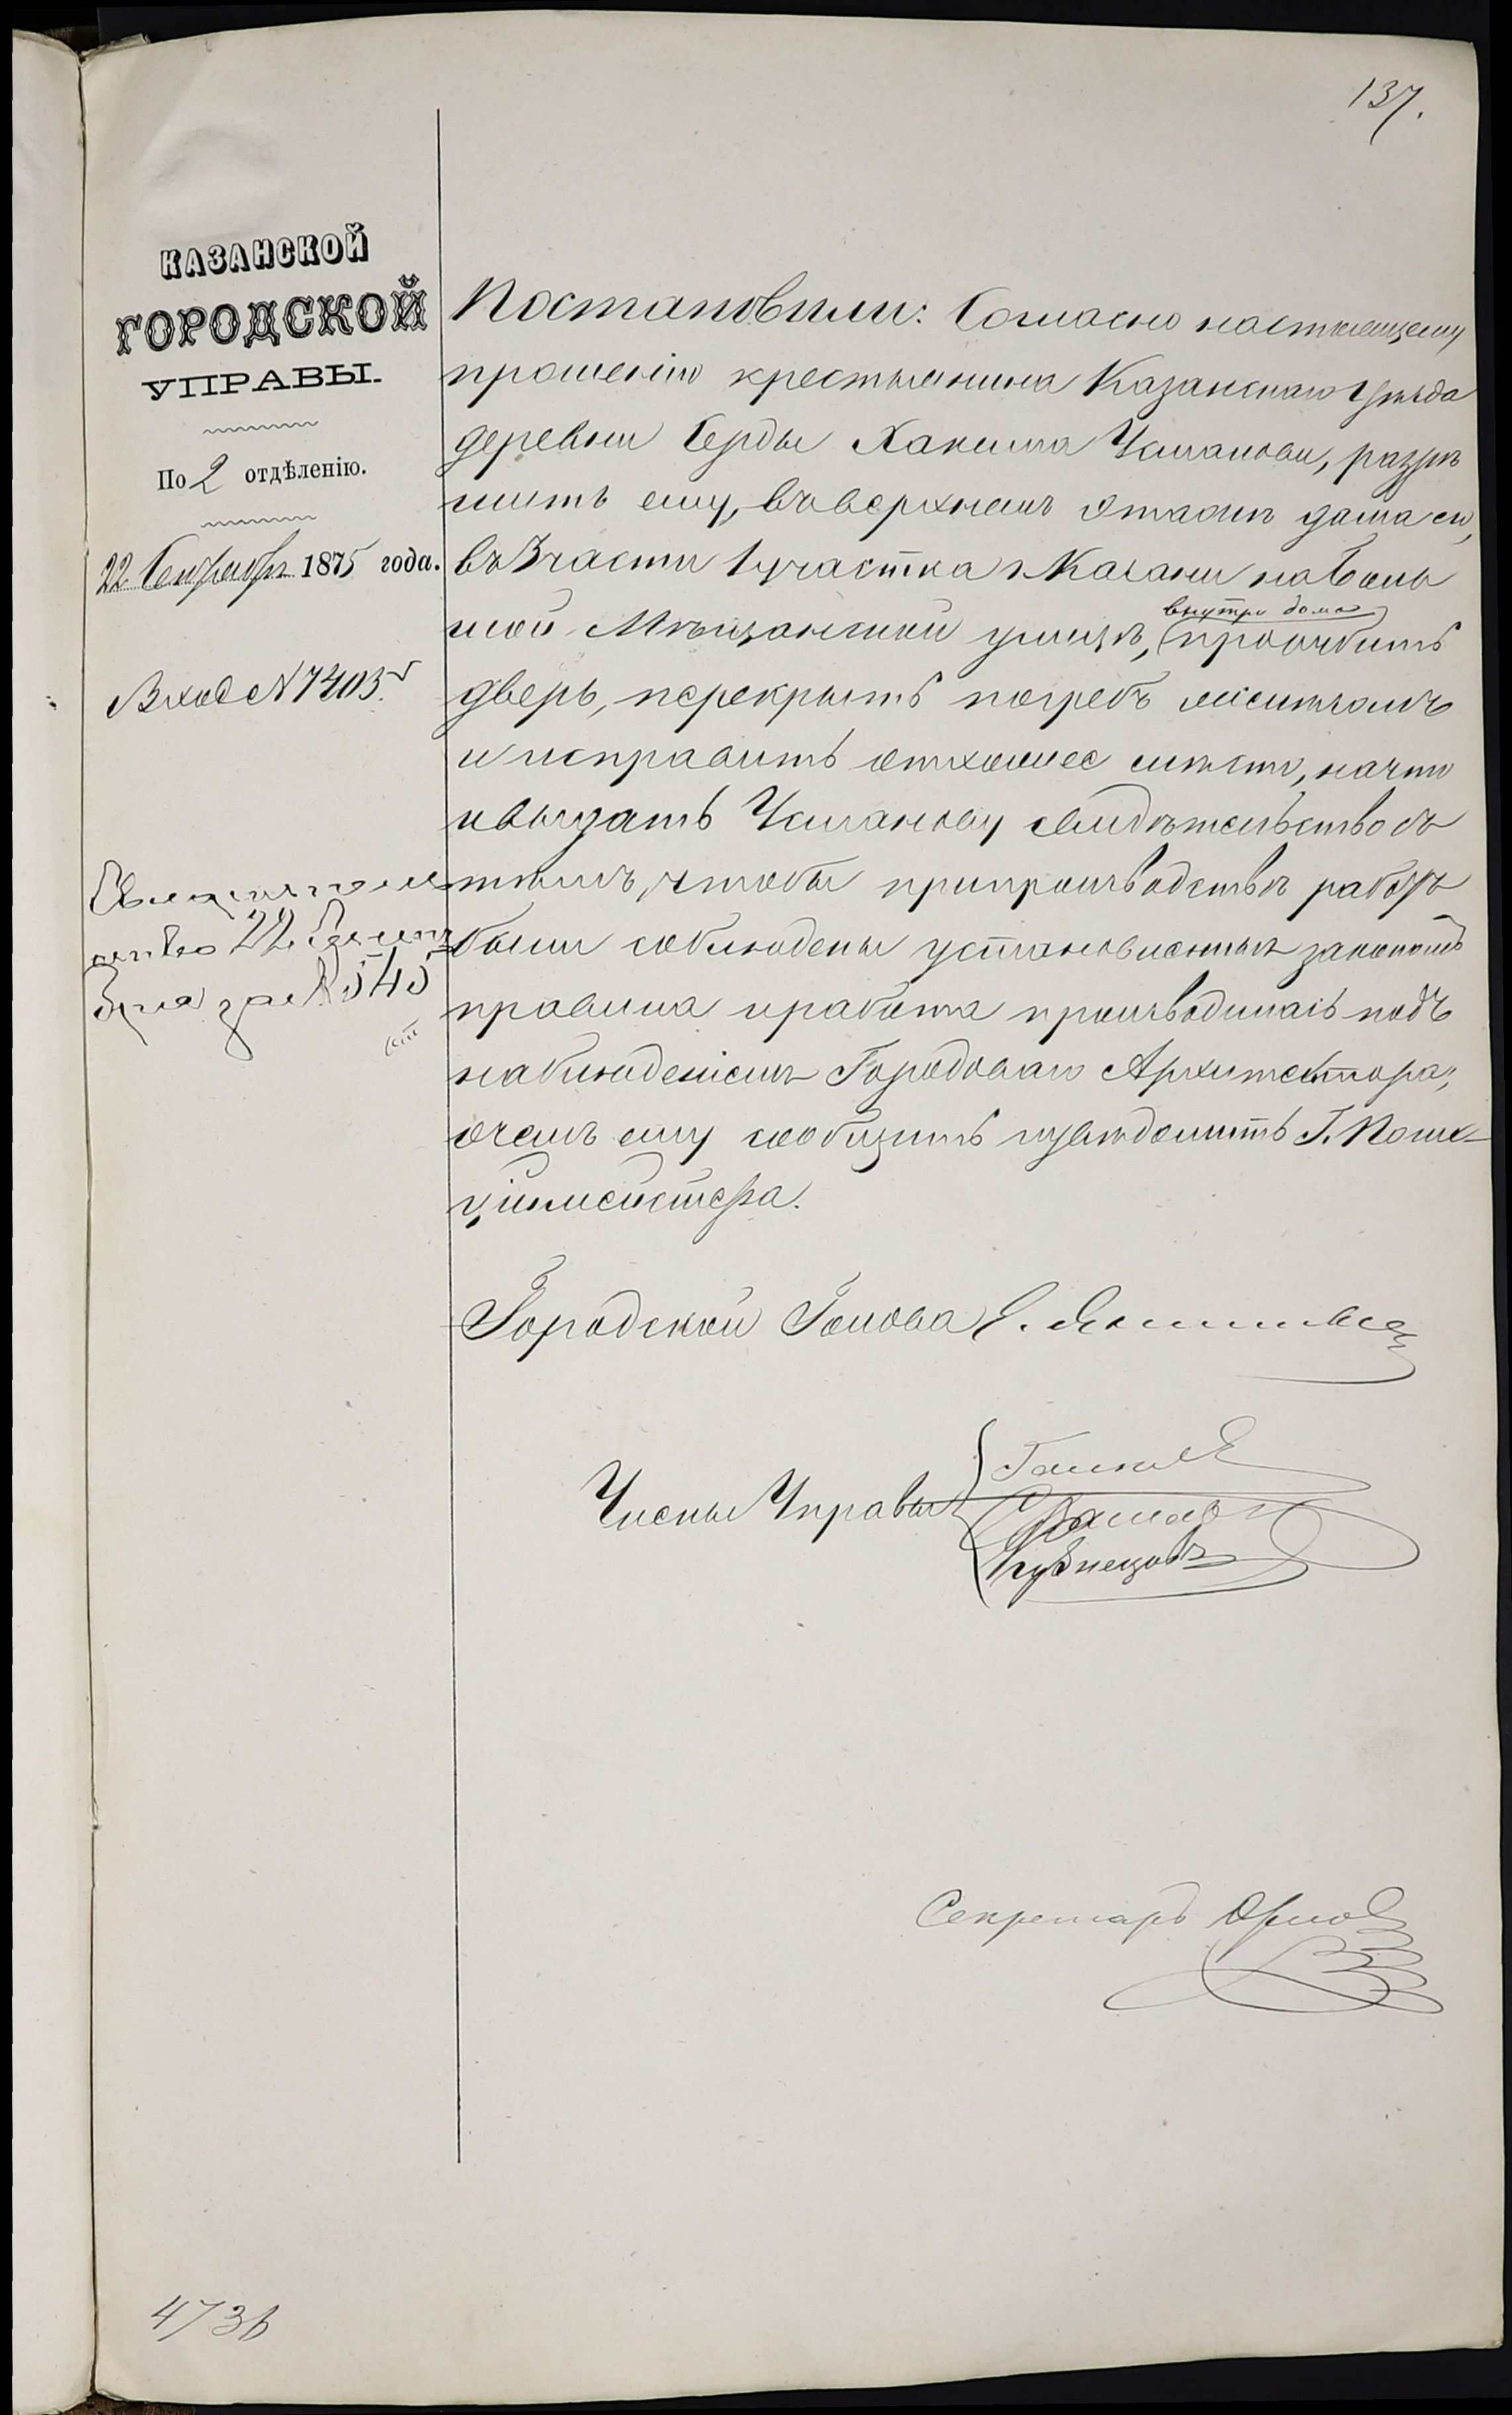 137.
КАЗАНСКОЙ
ГОРОДСКОЙ
УПРАВЫ.
По 2 отдѣленію.
22 Сентября 1875 года.
Вход № 7403
22
за № 545
Постановили: Согласно настоящему
прошенію крестьянина Казанскаго Уѣзда
деревни Серды Хакима Усманова, разрѣ
шить ему, въ верхнемъ этажѣ дома его,
въ 3 части 1 участка г. Казани на Боль
шой Мѣщанской улицѣ, внутри дома прорубить
дверь, перекрыть погребъ лѣсомъ
и исправить отхожее мѣсто, на что
и выдать Усманову свидѣтельство съ
тѣмъ, чтобы при производствѣ работъ
были соблюдены установленныя закономъ
правила и работа производилась подъ
наблюденіемъ Городоваго Архитектора;
о чемъ ему сообщить и увѣдомить Г. Поли-
ціймейстера.
Городской Голова
Члены Управы
Кузнецовъ
Секретарь Орлов
473в